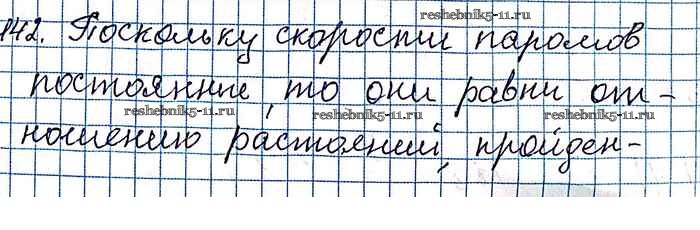 142. Поскольку скорости паромов
постоянние, то они равни от-
ношению растояний, пройден-
reshebnik5-11.ru
reshebnik5-11.ru
reshebnik5-11.ru
reshebnik5-11.ru